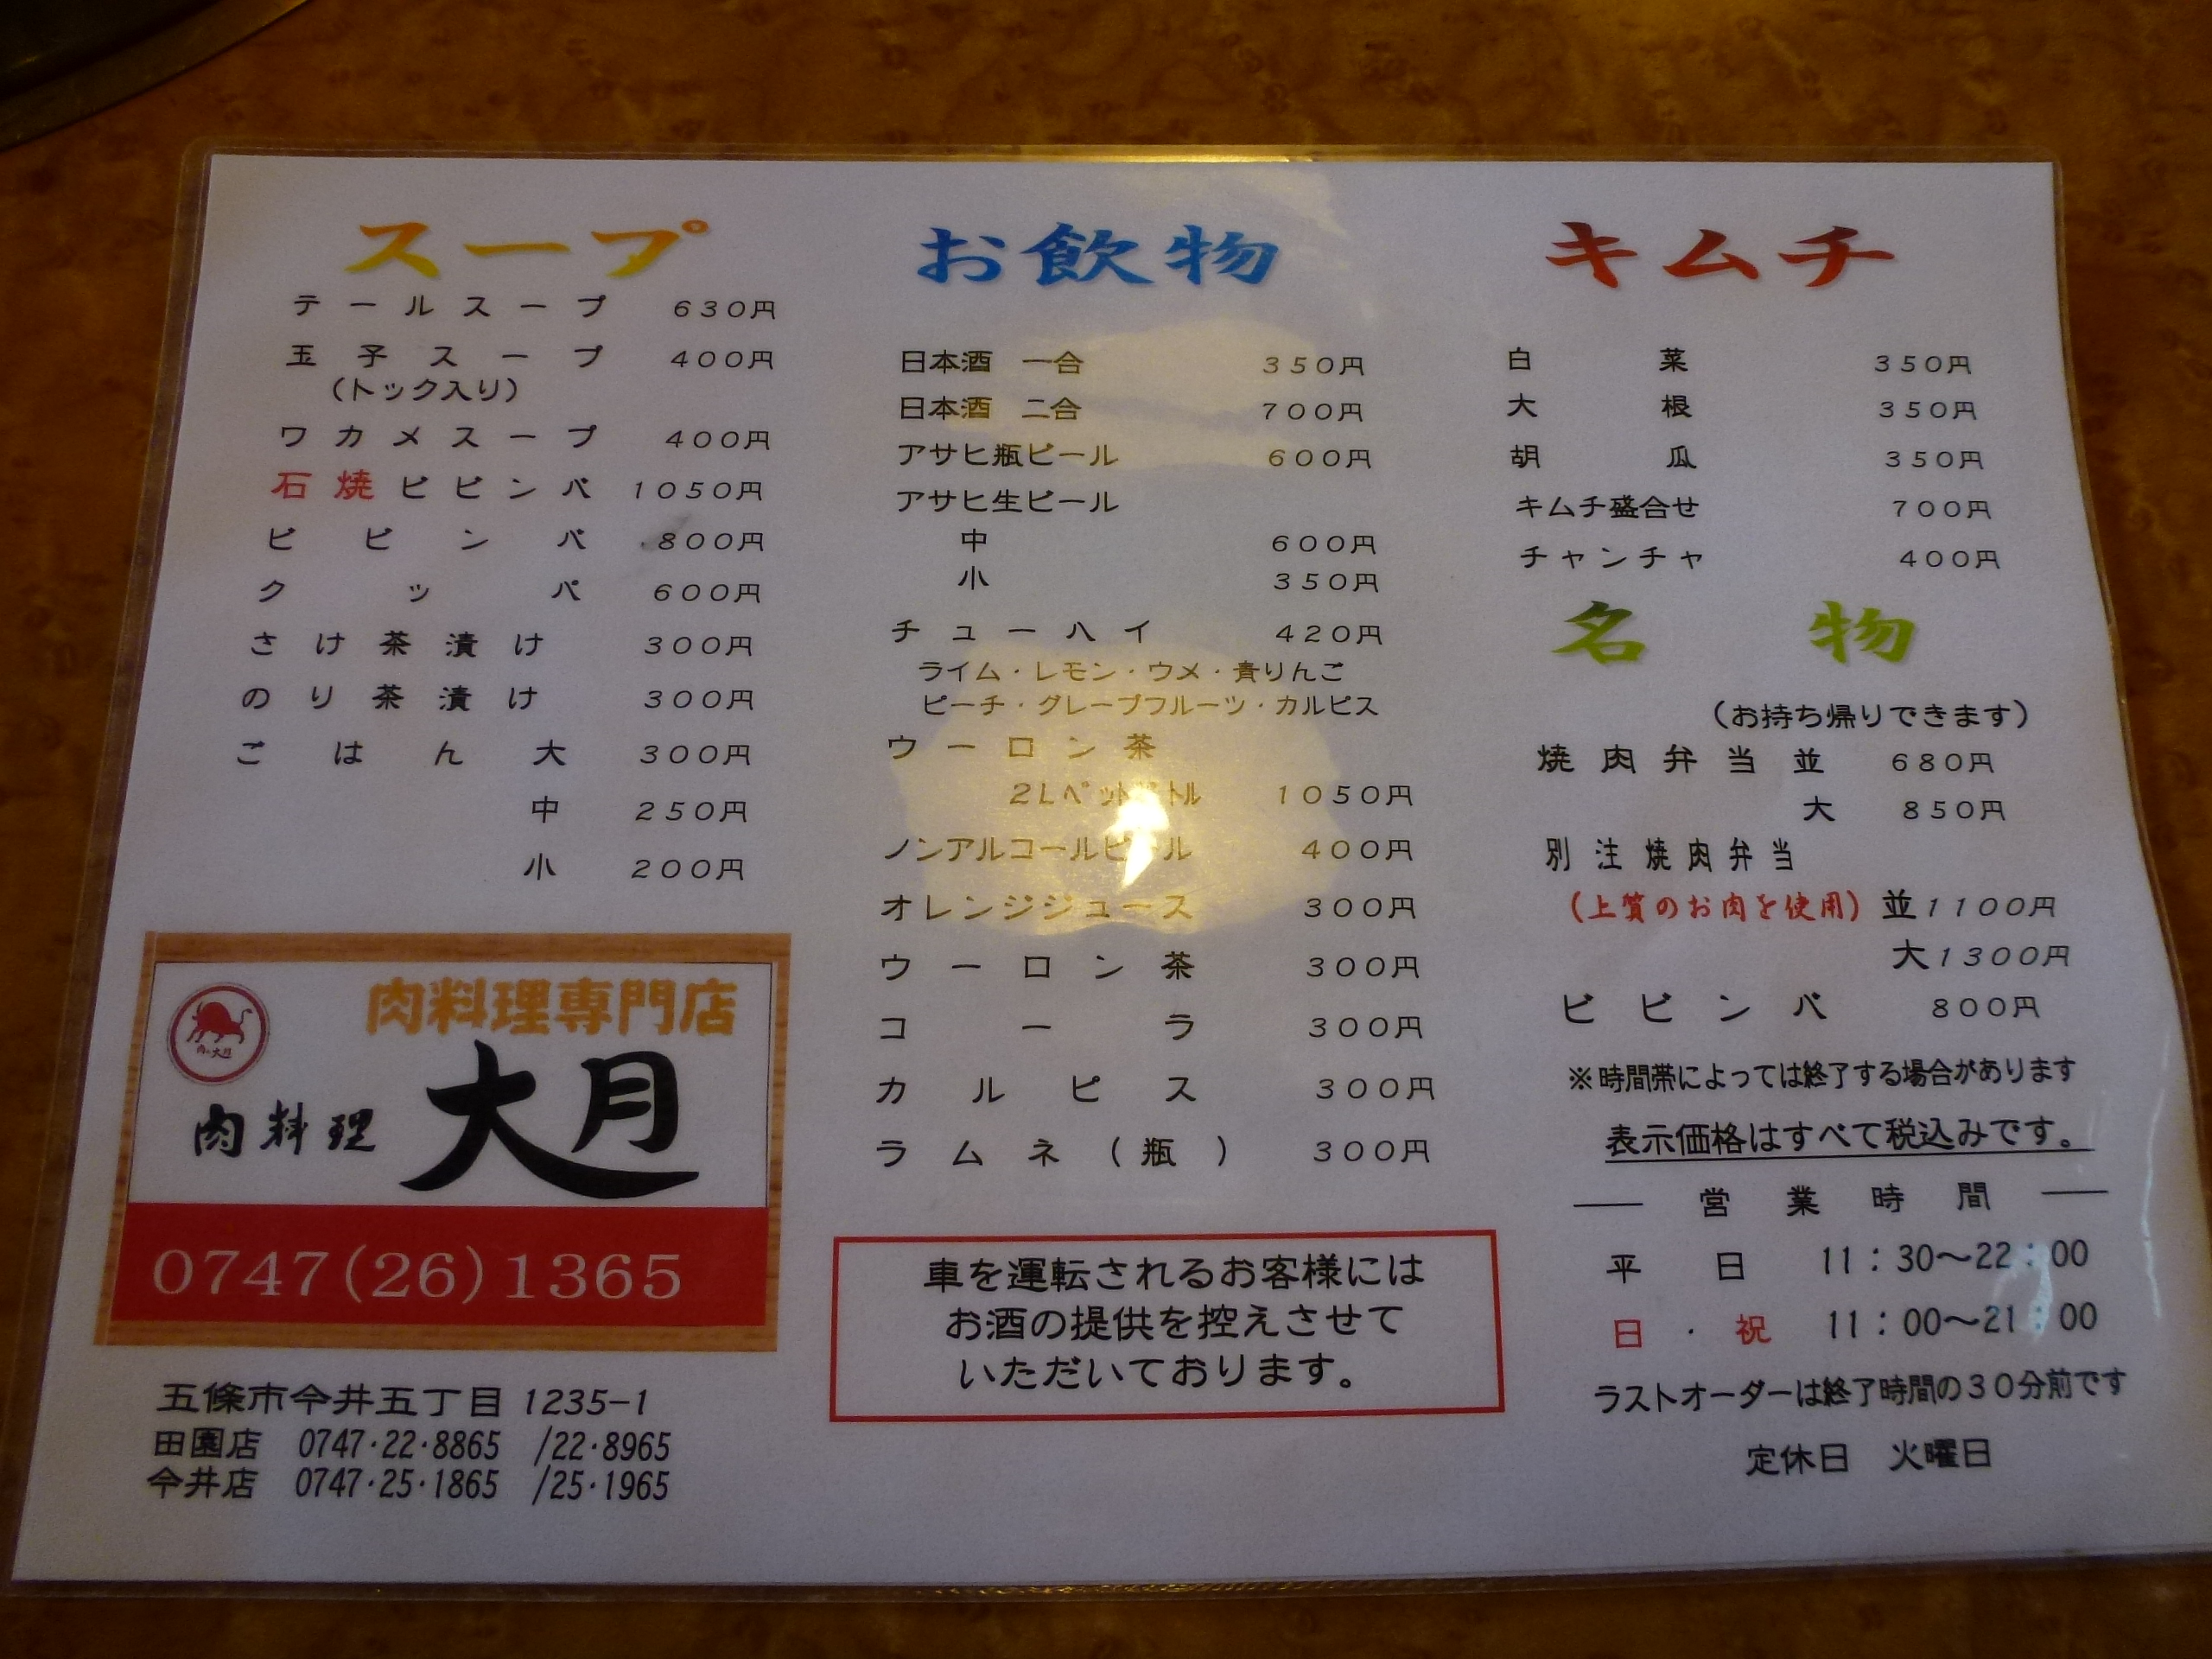 スープ
テールスープ 630円
玉子スープ 400円
(トック入り)
ワカメスープ 400円
石焼ビビンバ 1050円
ビビンバ 800円
クッパ 600円
さけ茶漬け 300円
のり茶漬け 300円
ごはん 大 300円
中 250円
小 200円
肉料理専門店
肉料理 大月
0747(26)1365
五條市今井五丁目 1235-1
田園店 0747・22・8865 /22・8965
今井店 0747・25・1865 /25・1965
お飲物
日本酒 一合 350円
日本酒 二合 700円
アサヒ瓶ビール 600円
アサヒ生ビール
中 600円
小 350円
チューハイ 420円
ライム・レモン・ウメ・青りんご
ピーチ・グレープフルーツ・カルピス
ウーロン茶
2Lペットボトル 1050円
ノンアルコールビール 400円
オレンジジュース 300円
ウーロン茶 300円
コーラ 300円
カルピス 300円
ラムネ(瓶) 300円
車を運転されるお客様には
お酒の提供を控えさせて
いただいております。
キムチ
白菜 350円
大根 350円
胡瓜 350円
キムチ盛合せ 700円
チャンチャ 400円
名物
(お持ち帰りできます)
焼肉弁当 並 680円
大 850円
別注焼肉弁当
(上質のお肉を使用) 並1100円
大1300円
ビビンバ 800円
※時間帯によっては終了する場合があります
表示価格はすべて税込みです。
営業時間
平日 11：30〜22：00
日・祝 11：00〜21：00
ラストオーダーは終了時間の30分前です
定休日 火曜日